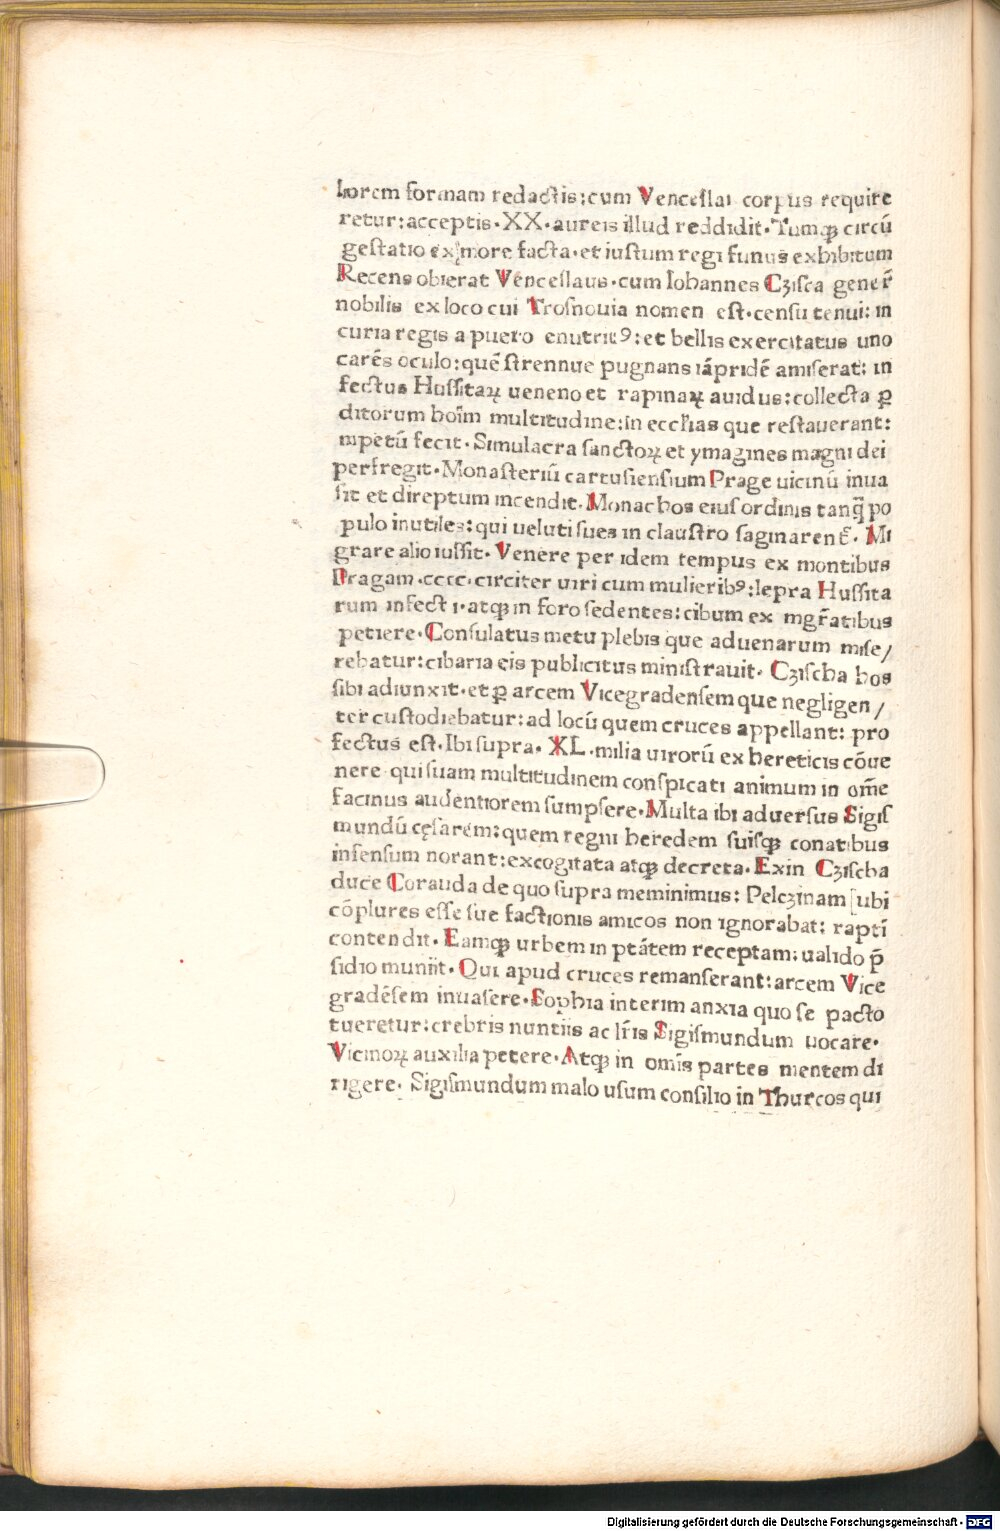 liorem formam redactis: cum Venceslai corpus require
retur: acceptis · XX · aureis illud reddidit · Tumqꝫ circū
gestatio ex more facta · et iustum regi funus exhibitum
Recens obierat Venceslaus · cum Iohannes Cziſca gener̄
nobilis ex loco cui Trosnouia nomen eſt · censu tenui: in
curia regis a puero enutritꝰ: et bellis exercitatus uno
carēs oculo: quē ſtrennue pugnans iāpridē amiſerat: in
fectus Huſſitaꝝ ueneno et rapinaꝝ auidus: collecta ꝑ
ditorum hoīm multitudine: in eccĺias que reſtauerant:
impetū fecit · Simulacra ſanctoꝝ et ymagines magni dei
perfregit · Monaſteriū cartusiensium Prage uicinū inua
ſit et direptum incendit · Monachos eius ordinis tanq̄ po
pulo inutiles: qui ueluti ſues in clauſtro ſaginarent̄ · Mi
grare alio iuſſit · Venere per idem tempus ex montibus
Pragam · cccc · circiter uiri cum mulieribꝰ: lepra Huſſita
rum infecti · atqꝫ in foro ſedentes: cibum ex mgr̄atibus
petiere · Conſulatus metu plebis que aduenarum miſe/
rebatur: cibaria eis publicitus miniſtrauit · Cziſcha hos
ſibi adiunxit · et ꝑ arcem Vicegradenſem que negligen/
ter cuſtodiebatur: ad locū quem cruces appellant: pro
fectus eſt · Ibi ſupra · XL · milia uirorū ex hereticis cōue
nere qui ſuam multitudinem conſpicati animum in om̄e
facinus audentiorem ſumpſere · Multa ibi aduerſus Sigiſ
mundū cęſarem: quem regni heredem ſuiſqꝫ conatibus
infenſum norant: excogitata atqꝫ decreta · Exin Cziſcha
duce Coranda de quo ſupra meminimus: Pelczinam [ubi
cōplures eſſe ſue factionis amicos non ignorabat: raptī
contendit · Eamqꝫ urbem in ptātem receptam: ualido p̄
ſidio muniit · Qui apud cruces remanſerant: arcem Vice
gradēſem inuaſere · Sophia interim anxia quo ſe pacto
tueretur: crebris nuntiis ac lr̄is Sigiſmundum uocare ·
Vicinoꝝ auxilia petere · Atqꝫ in om̄is partes mentem di
rigere · Sigiſmundum malo uſum conſilio in Thurcos qui
Digitalisierung gefördert durch die Deutsche Forschungsgemeinschaft - DFG